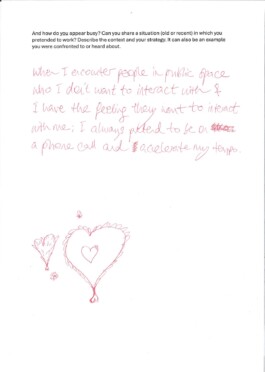 And how do you appear busy? Can you share a situation (old or recent) in which you
pretended to work? Describe the context and your strategy. It can also be an example
you were confronted to or heard about.
When I encounter people in public space
who I don't want to interact with &
I have the feeling they want to interact
with me; I always pretend to be on
a phone call and acelerate my tempo